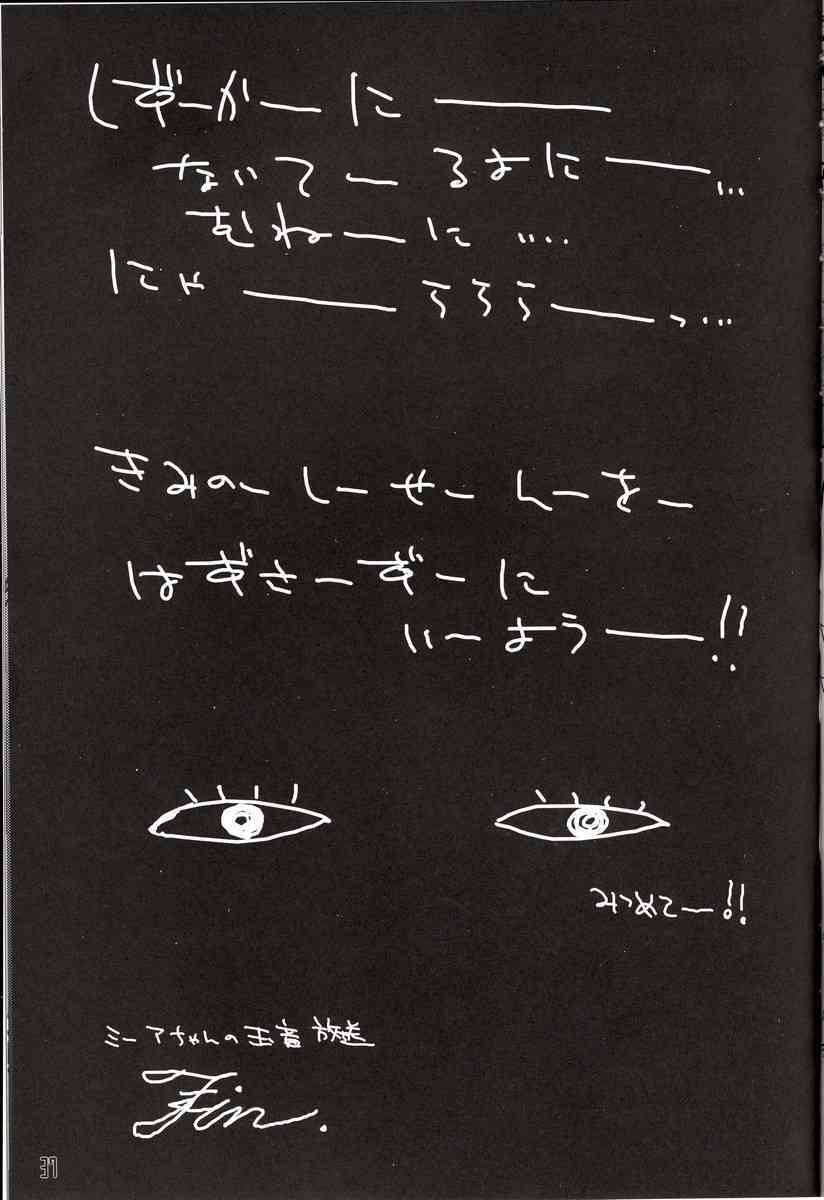 しずーかーに———
ないてーるよに——…
むねーに‥‥
にゃ———ららら——っ…
きみのーしーせーんーをー
はずさーずーに
いーよう——!!
みつめてー!!
ミーアちゃんの玉音放送
Fin.
37